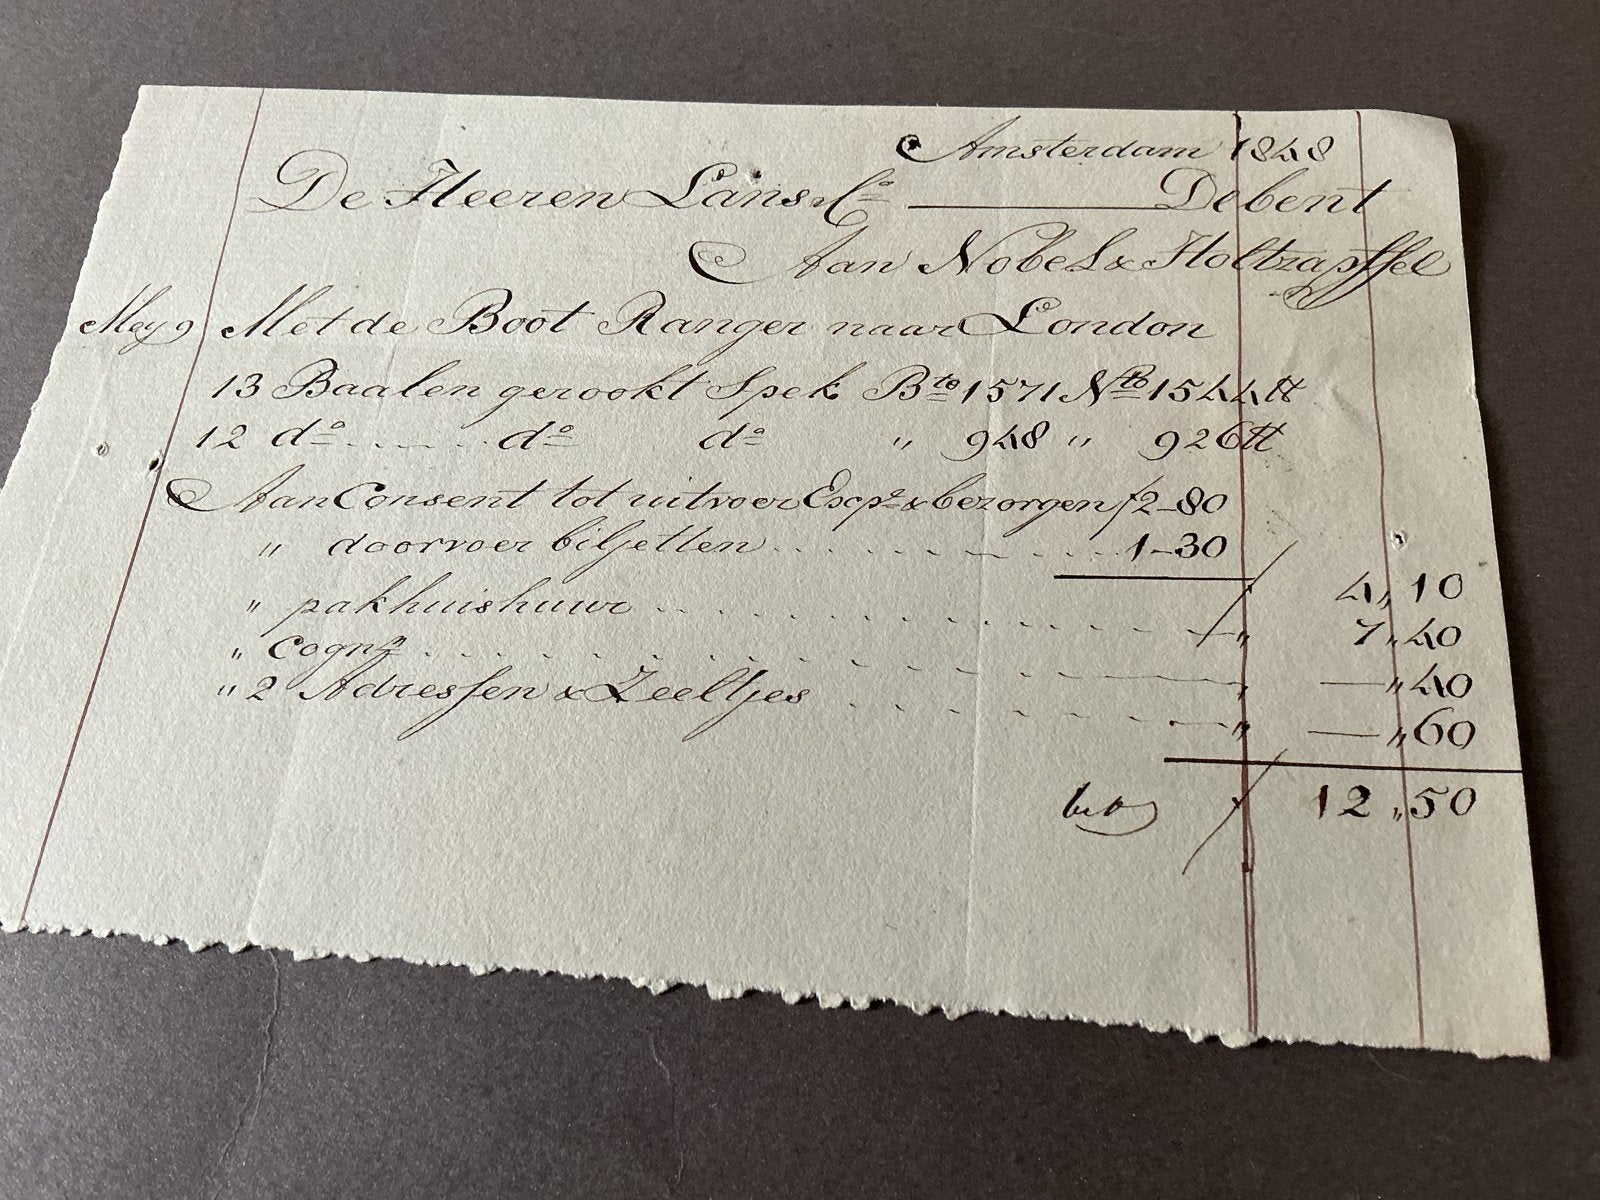 Amsterdam 1848
De Heeren Lans & Co Debent
Aan Nobel & Holtzapffel
Mey 9 Met de Boot Ranger naar London
13 Baalen gerookt Spek Bto 1571 Nto 1544 ℔
12 do do do " 948 " 926 ℔
Aan Consent tot uitvoer Expe & bezorgen f 2-80
" doorvoer biljetten 1-30
f 4,, 10
" pakhuishuur " 7,, 40
" Cogn " — ,, 40
" 2 Adressen & Zeeltjes " — ,, 60
f 12,, 50